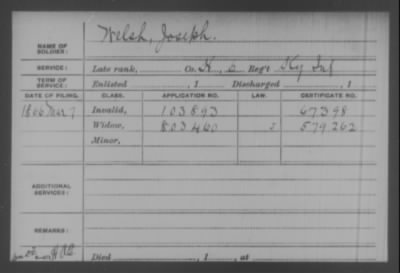 Welsh, Joseph.
NAME OF SOLDIER:
SERVICE: Late rank, Co. H, 2 Reg't Ky Inf
TERM OF SERVICE: Enlisted , 1 Discharged , 1
DATE OF FILING. CLASS. APPLICATION NO. LAW. CERTIFICATE NO.
1866 Mar 7 Invalid, 103893 67398
Widow, 803460 579262
Minor,
ADDITIONAL SERVICES:
REMARKS:
Died , 1 , at